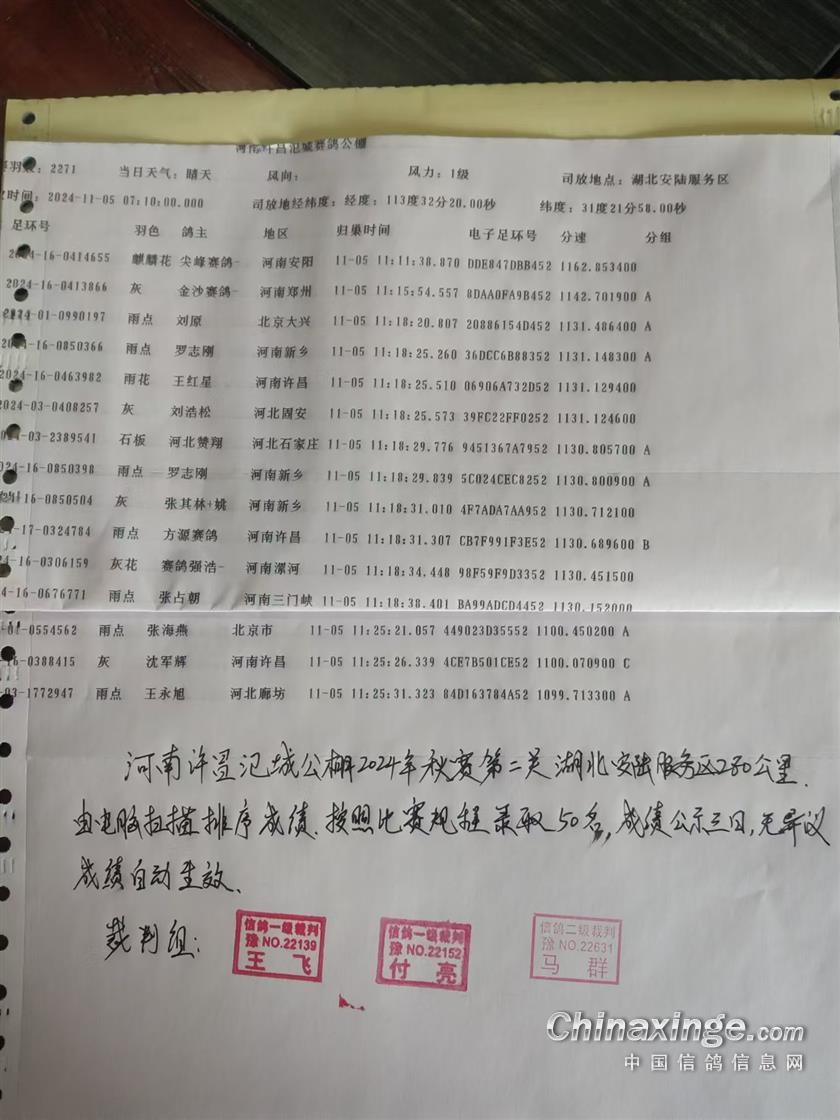 河南许昌氾城赛鸽公棚
羽数：2271 当日天气：晴天 风向： 风力：1级 司放地点：湖北安陆服务区
时间：2024-11-05 07:10:00.000 司放地经纬度：经度：113度32分20.00秒 纬度：31度21分58.00秒
足环号 羽色 鸽主 地区 归巢时间 电子足环号 分速 分组
2024-16-0414655 麒麟花 尖峰赛鸽- 河南安阳 11-05 11:11:38.870 DDE847DBB452 1162.853400
2024-16-0413866 灰 金沙赛鸽- 河南郑州 11-05 11:15:54.557 8DAA0FA9B452 1142.701900 A
2024-01-0990197 雨点 刘原 北京大兴 11-05 11:18:20.807 20886154D452 1131.486400 A
2024-16-0850366 雨点 罗志刚 河南新乡 11-05 11:18:25.260 36DCC6B88352 1131.148300 A
2024-16-0463982 雨花 王红星 河南许昌 11-05 11:18:25.510 06906A732D52 1131.129400
2024-03-0408257 灰 刘浩松 河北固安 11-05 11:18:25.573 39FC22FF0252 1131.124600
024-03-2389541 石板 河北赞翔 河北石家庄 11-05 11:18:29.776 9451367A7952 1130.805700 A
024-16-0850398 雨点 罗志刚 河南新乡 11-05 11:18:29.839 5C024CEC8252 1130.800900 A
-16-0850504 灰 张其林+姚 河南新乡 11-05 11:18:31.010 4F7ADA7AA952 1130.712100
24-17-0324784 雨点 方源赛鸽 河南许昌 11-05 11:18:31.307 CB7F991F3E52 1130.689600 B
24-16-0306159 灰花 赛鸽强浩- 河南漯河 11-05 11:18:34.448 98F59F9D3352 1130.451500
4-16-0676771 雨点 张占朝 河南三门峡 11-05 11:18:38.401 BA99ADCD4452 1130.152000
-01-0554562 雨点 张海燕 北京市 11-05 11:25:21.057 449023D35552 1100.450200 A
-16-0388415 灰 沈军辉 河南许昌 11-05 11:25:26.339 4CE7B501CE52 1100.070900 C
-03-1772947 雨点 王永旭 河北廊坊 11-05 11:25:31.323 84D163784A52 1099.713300 A
河南许昌氾城公棚2024年秋赛第二关湖北安陆服务区280公里.
由电脑扫描排序成绩.按照比赛规程录取50名,成绩公示三日,无异议
成绩自动生效.
裁判组：
信鸽一级裁判
豫NO.22139
王飞
信鸽一级裁判
豫NO.22152
付亮
信鸽二级裁判
豫NO.22631
马群
Chinaxinge.com
中国信鸽信息网